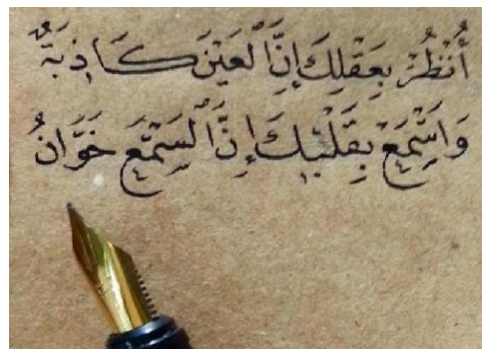 أُنْظُرْ بِعَقْلِكَ إِنَّ الْعَيْنَ كَاذِبَةٌ
وَاسْمَعْ بِقَلْبِكَ إِنَّ السَّمْعَ خَوَّانُ